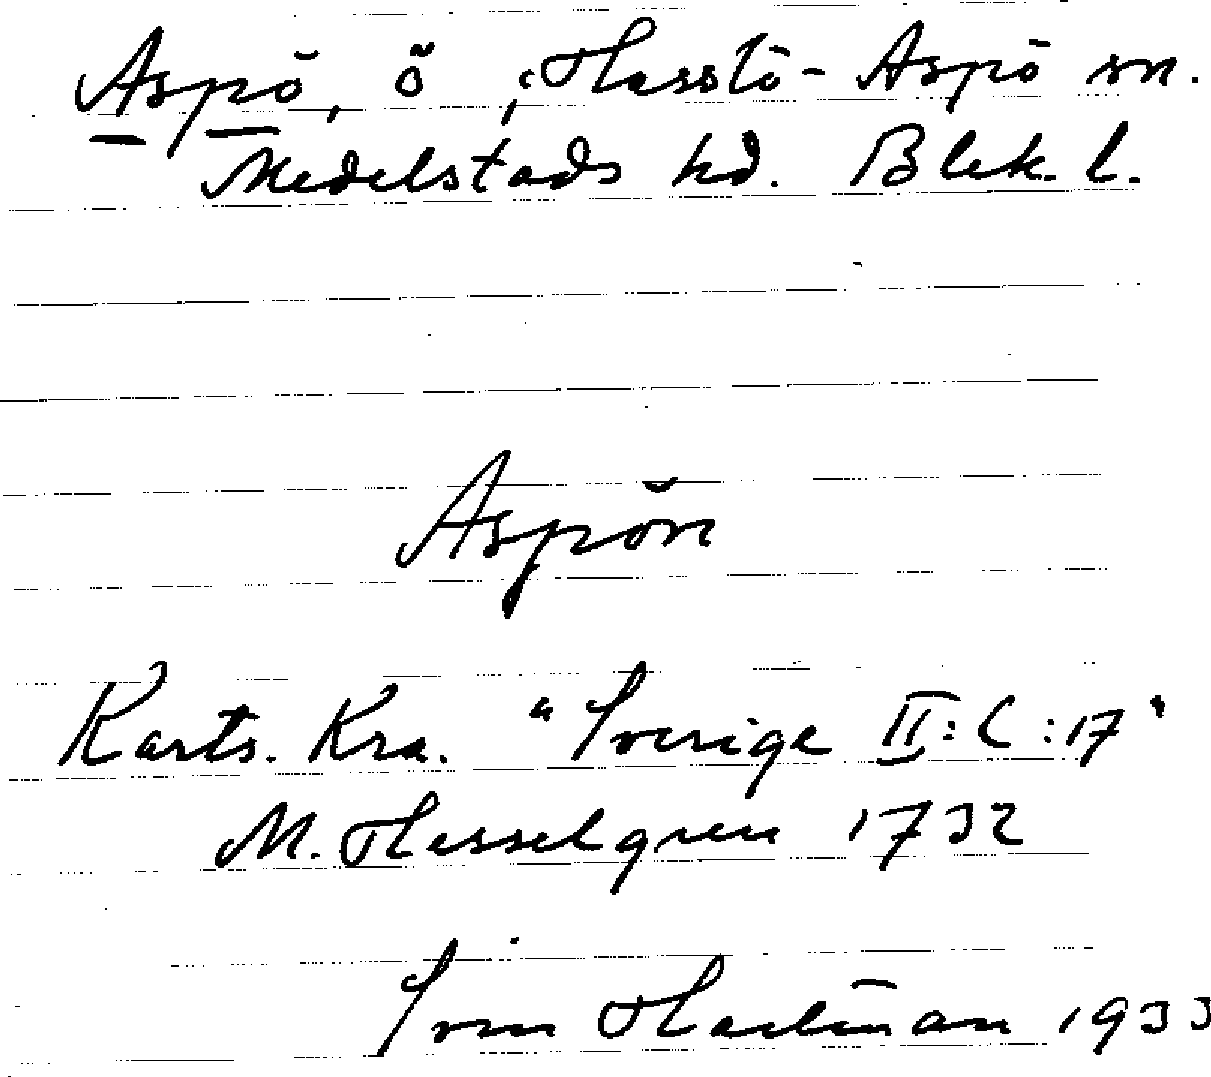 Aspö, ö, Hasslö-Aspö sn.
Medelstads hd. Blek. l.
Aspön
Karts. Kra. "Sverige II:C:17"
M. Hesselgren 1732
Sven 1933